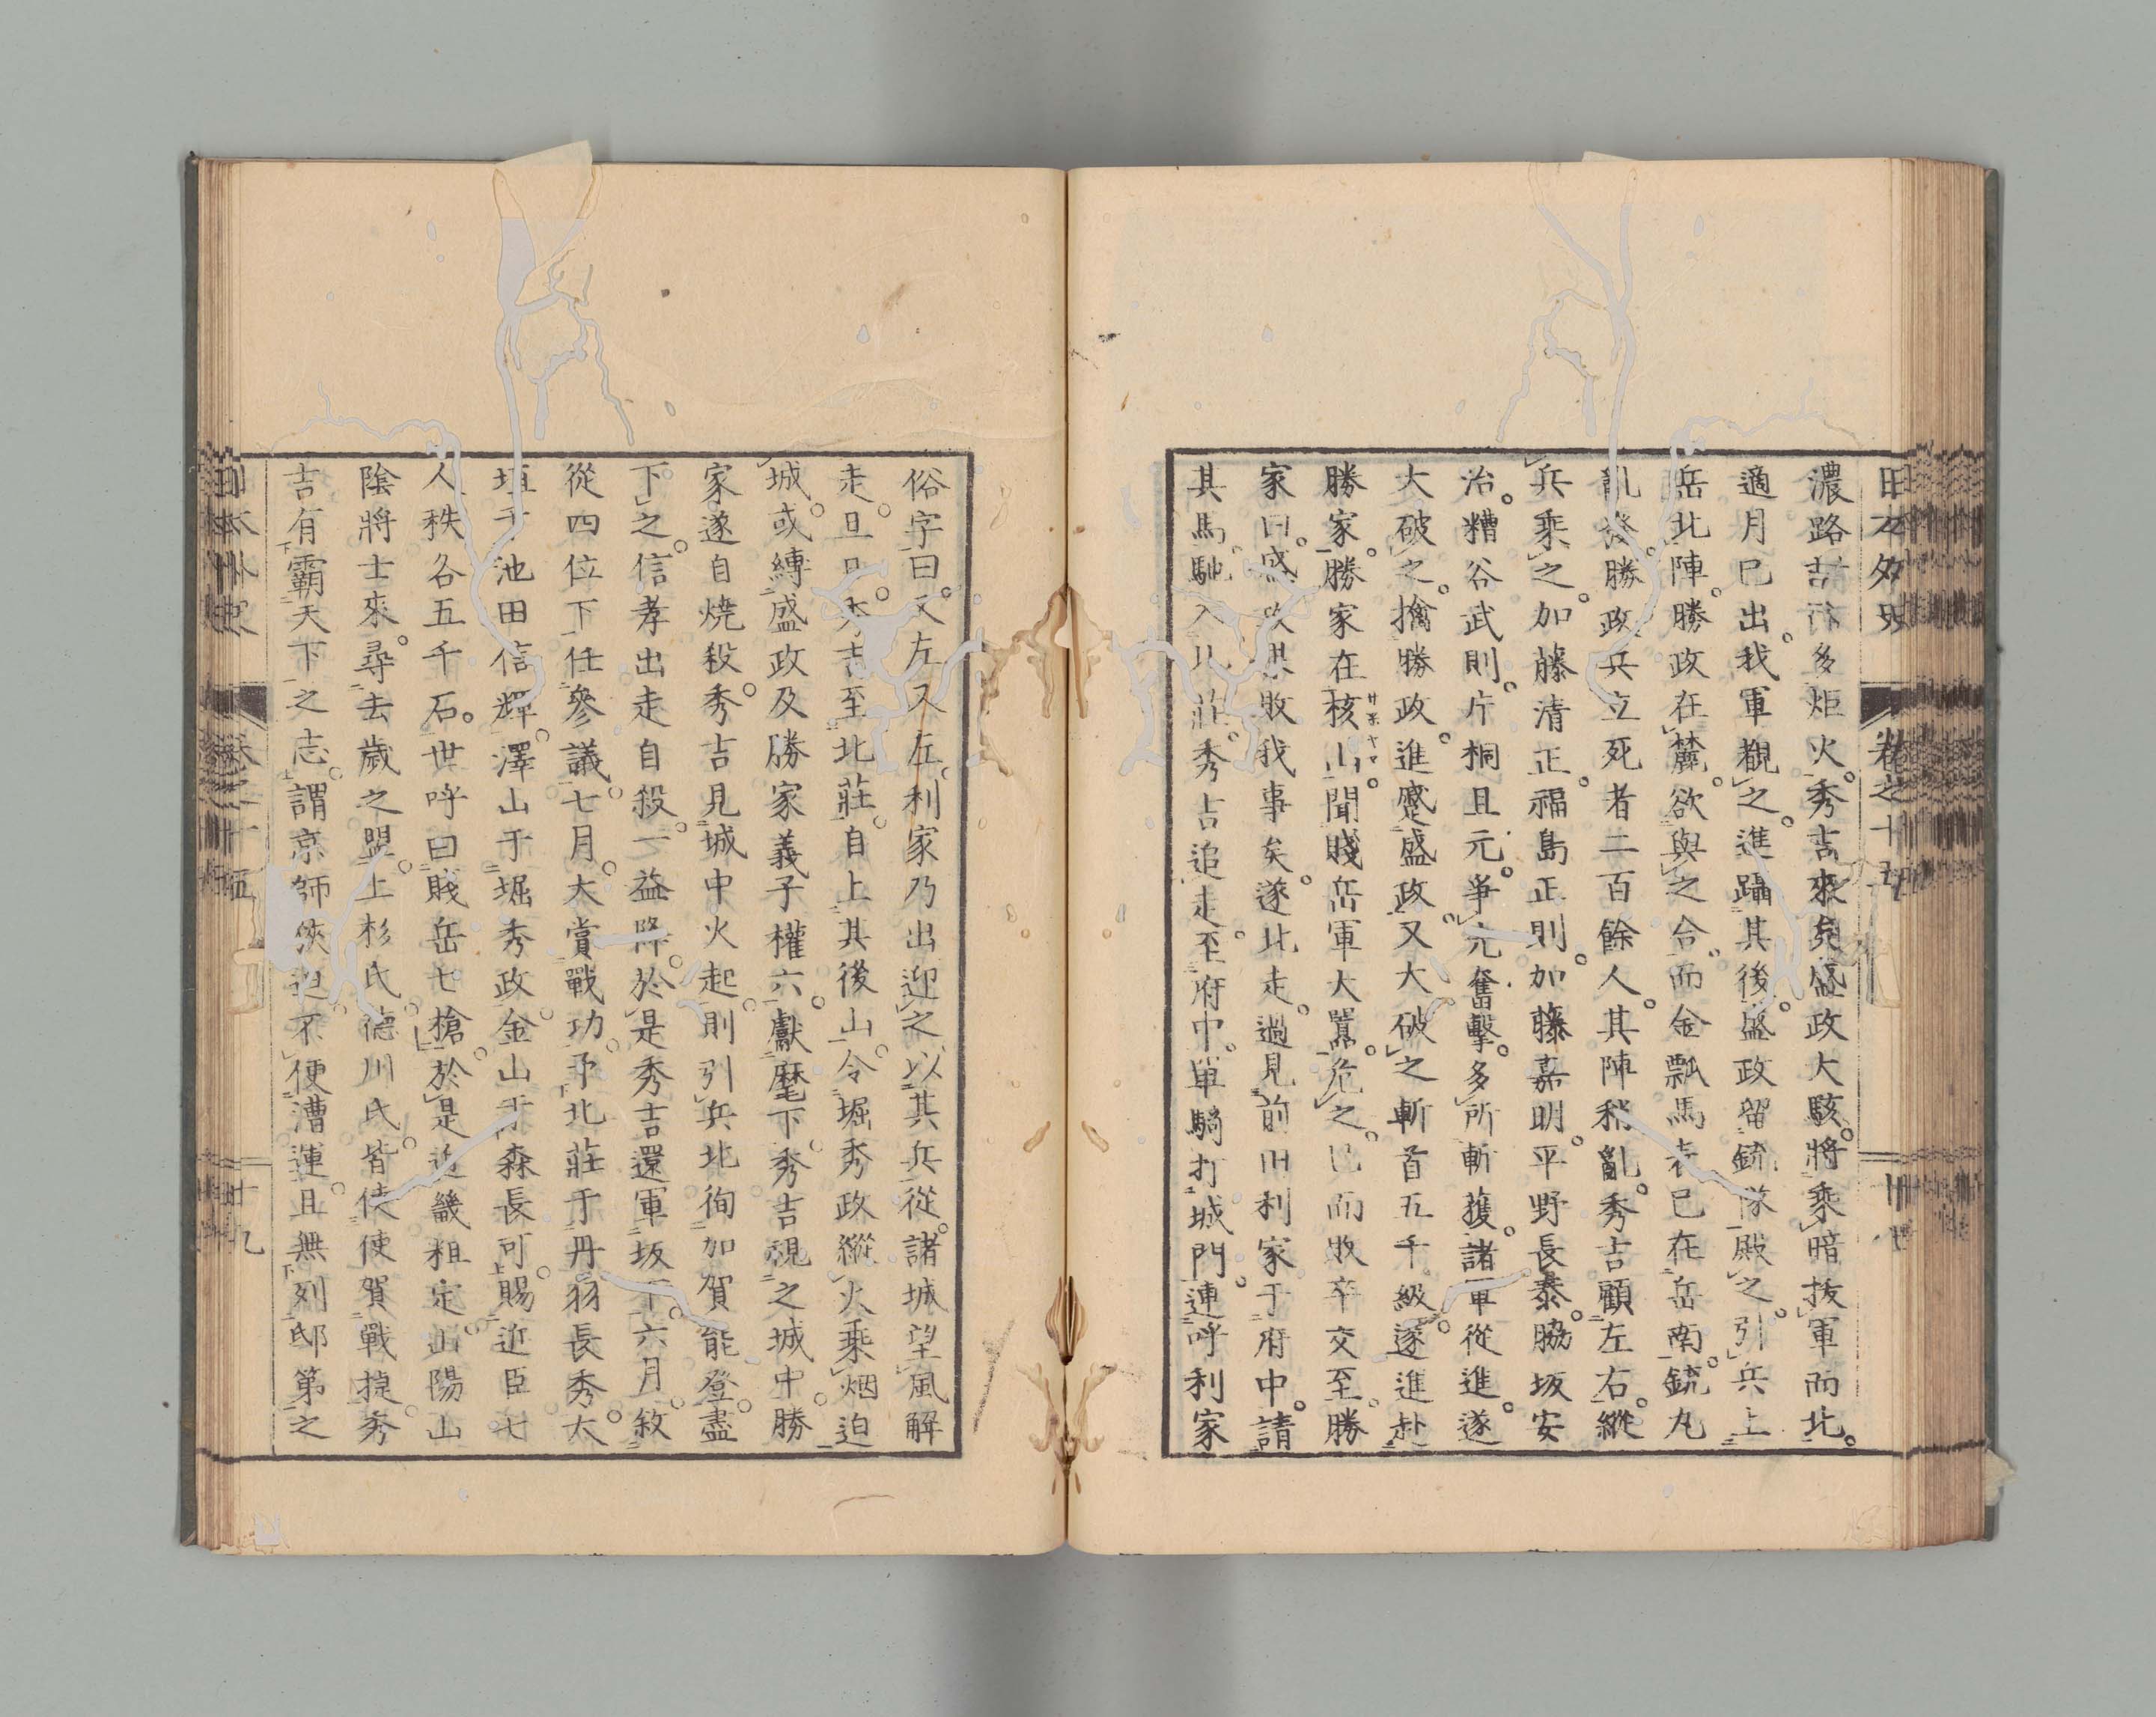 日本外史 卷之十五
濃路吉㕝多炬火秀吉來矣盛政大駭將乘暗拔軍而北
適月已出我軍觀之進躡其後盛政留銃隊殿之引兵上
岳北陣勝政在麓欲與之合而金瓢馬表已在岳南銃丸
亂發勝政兵立死者二百餘人其陣稍亂秀吉顧左右縱
兵乘之加藤清正福島正則加藤嘉明平野長泰脇坂安
治糟谷武則片桐且元爭先奮擊多所斬獲諸軍從進遂
大破之擒勝政進蹙盛政又大破之斬首五千級遂進赴
勝家勝家在核山聞賤岳軍大囂危之已而敗卒交至勝
家曰盛政果敗我事矣遂北走過見前田利家于府中請
其馬馳入北莊秀吉追走至府中單騎打城門連呼利家
俗字曰又左又左利家乃出迎之以其兵從諸城望風解
走旦日秀吉至北莊自上其後山令堀秀政縱火乘烟迫
城或縛盛政及勝家義子權六獻麾下秀吉視之城中勝
家遂自燒殺秀吉見城中火起則引兵北徇加賀能登盡
下之信孝出走自殺一益降於是秀吉還軍坂下六月敘
從四位下任參議七月大賞戰功予北莊于丹羽長秀大
垣于池田信輝澤山于堀秀政金山于森長可賜近臣七
人秩各五千石世呼曰賤岳七槍於是近畿粗定山陽山
陰將士來尋去歲之盟上杉氏德川氏皆使使賀戰捷秀
吉有霸天下之志謂京師俠迫不便漕運且無列邸第之
日本外史 卷之十五 十九